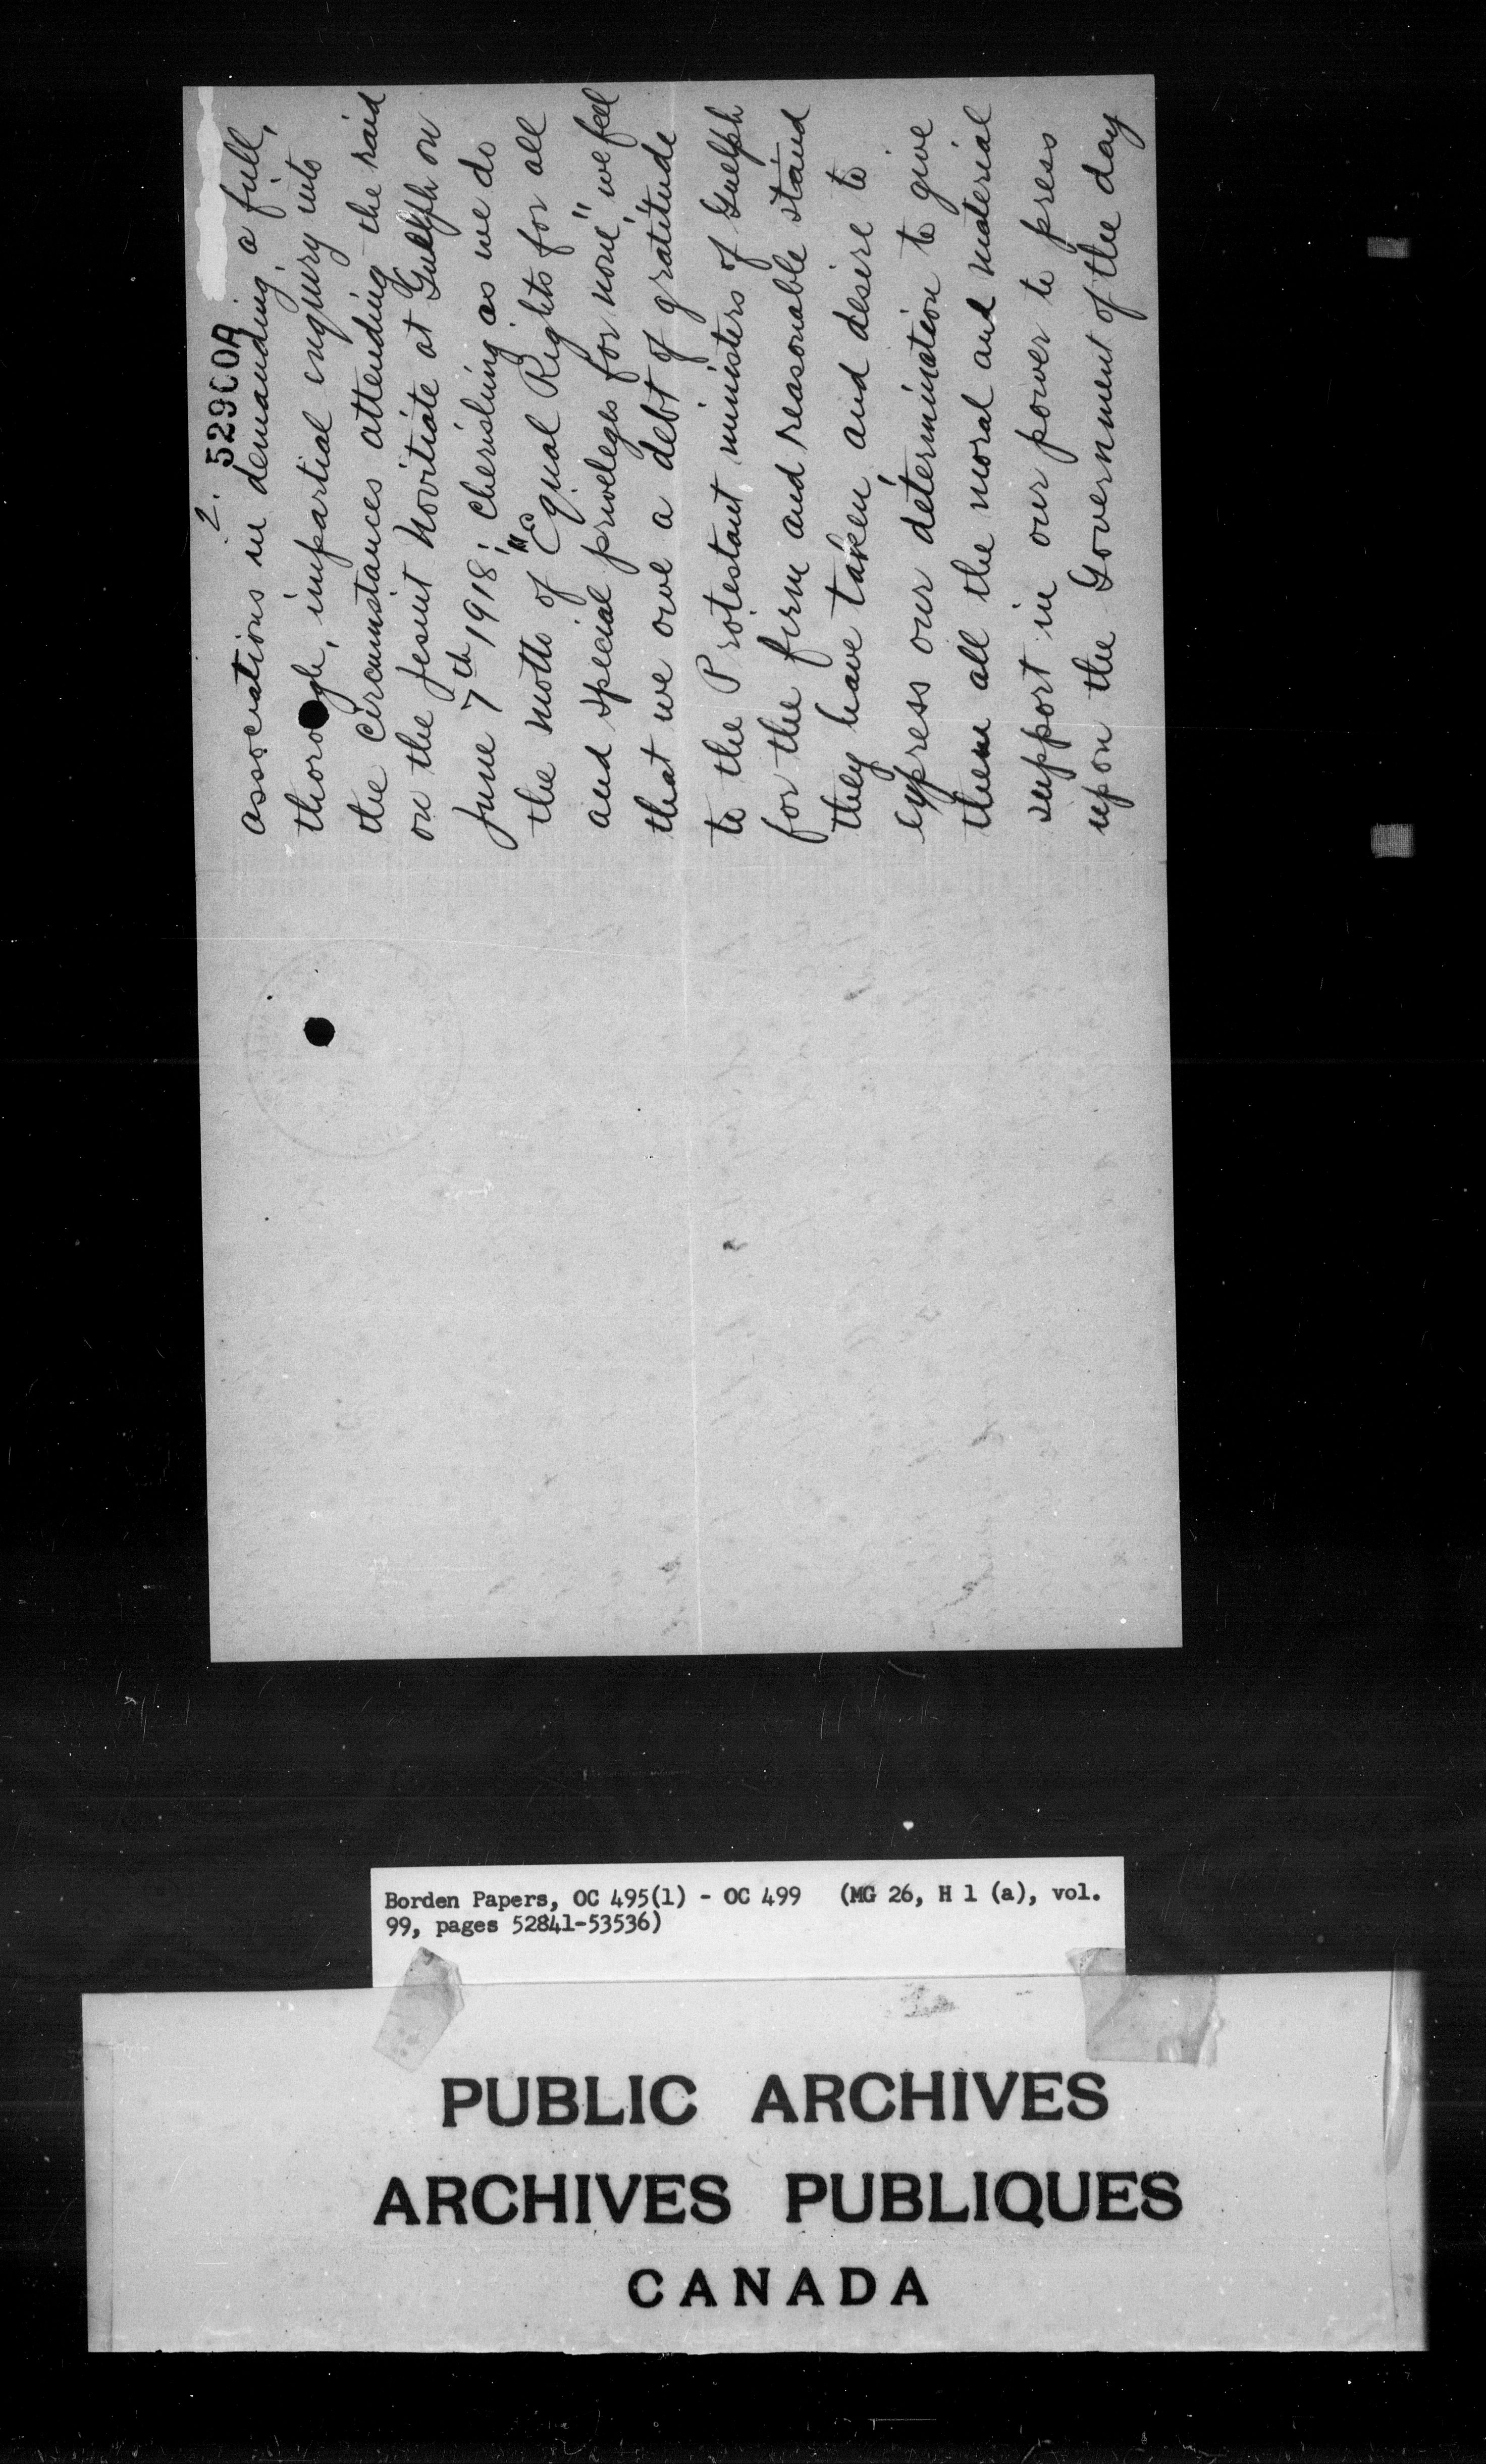 2. 52900A
associations in demanding a full,
thorough, impartial enquiry into
the circumstances attending the raid
on the Jesuit Novitiate at Guelph on
June 7th 1918; Cherishing as we do
the motto of "Equal Rights for all
and special privileges for none", we feel
that we owe a debt of gratitude
to the Protestant ministers of Guelph
for the firm and reasonable stand
they have taken, and desire to
express our determination to give
them all the moral and material
support in our power to press
upon the Government of the day
Borden Papers, OC 495(1) - OC 499 (MG 26, H 1 (a), vol.
99, pages 52841-53536)
PUBLIC ARCHIVES
ARCHIVES PUBLIQUES
CANADA